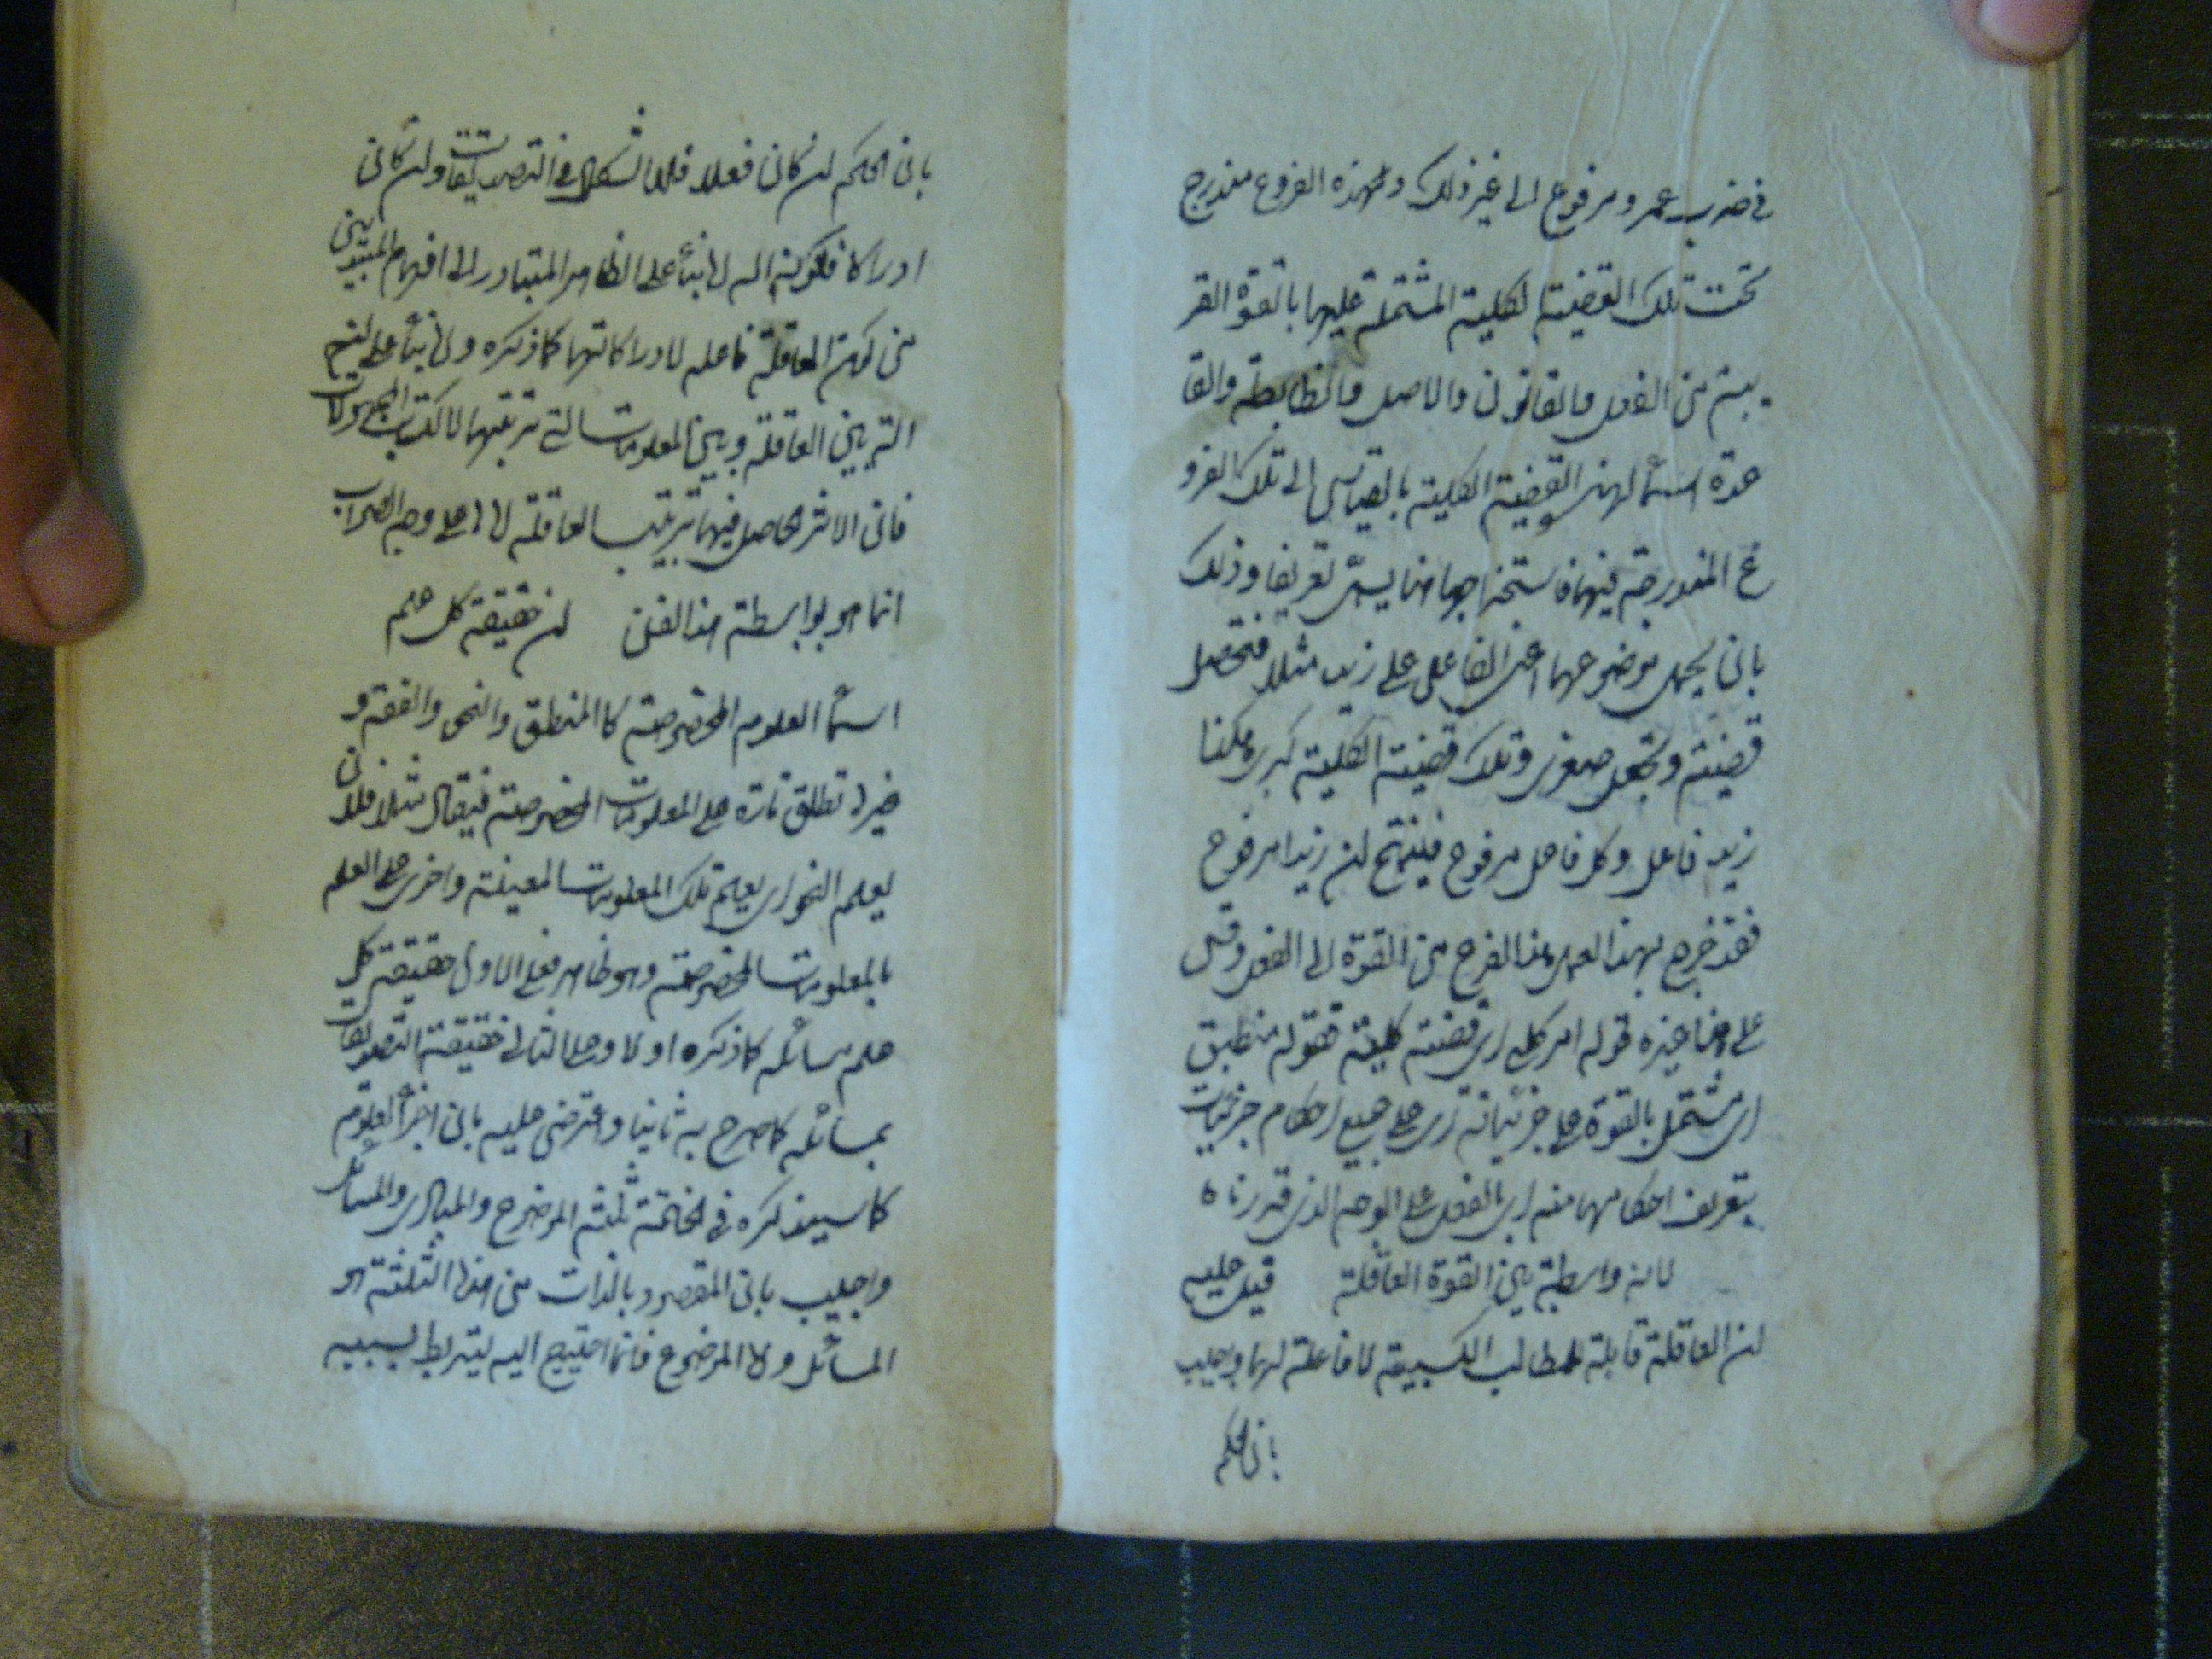 في ضرب عمرو مرفوع الى غير ذلك وهذه الفروع مندرج
تحت تلك القضية الكلية المشتملة عليها بالقوة القر
يبة من الفعل والقانون والاصل والضابطة والقا
عدة اسماء لهذه القضية الكلية بالقياس الى تلك الفرو
ع المندرجة فيها فاستخراجها منها يسمى تفريعا وذلك
بان يحمل موضوعها اعني الفاعل على زيد مثلا فتحصل
قضية وتجعل صغرى وتلك قضية الكلية كبرى هكذا
زيد فاعل وكل فاعل مرفوع فينتج ان زيدا مرفوع
فقد خرج بهذا العمل هذا الفرع من القوة الى الفعل وقس
على هذا غيره قوله امر كلي اى قضية كلية فقوله منطبق
اى مشتمل بالقوة على جزئياته اى على جميع احكام جزئيات
يتعرف احكامها منه اى بالفعل على الوجه الذى قررناه
لانه واسطة بين القوة العاقلة قيل عليه
ان العاقلة قابلة للمطالب الكسبية لا فاعلة لها واجيب
بان الحكم
بان الحكم ان كان فعلا فلا اشكال في التصديقات وان كان
ادراكا فكونه اله لها بناء على الظاهر المتبادر الى افهام المبتدئين
من كون العاقلة فاعلة لادراكاتها كما ذكره
التى بين العاقلة وبين المعلومات التي ترتبها لاكتساب المجهولات
فان الاثر الحاصل فيها بترتيب العاقلة اياها على وجه الصواب
انما هو بواسطة هذا الفن ان حقيقة كل علم
اسماء العلوم المخصوصة كالمنطق والنحو والفقه و
غيرها تطلق تارة على المعلومات المخصوصة فيقال مثلا فلان
يعلم النحو اى يعلم تلك المعلومات المعينة واخرى على العلم
بالمعلومات المخصوصة وهو ظاهر فعلى الاول حقيقة كل
علم مسائله كما ذكره اولا وعلى الثانى حقيقة التصديقات
بمسائله كما صرح به ثانيا واعترض عليه بان اجزاء العلوم
كما سيذكره في الخاتمة ثلثة الموضوع والمبادى والمسائل
واجيب بان المقصود بالذات من هذه الثلثة هو
المسائل ولا الموضوع فانما احتيج اليه ليتربط بسببه